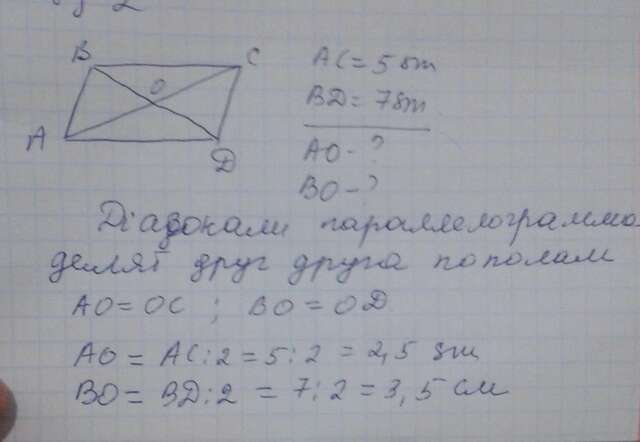 B
C
O
A
D
AC = 5 sm
BD = 7 sm
AO - ?
BO - ?
Діагонали параллелограмма
делят друг друга пополам
AO = OC ; BO = OD
AO = AC : 2 = 5 : 2 = 2,5 sm
BO = BD : 2 = 7 : 2 = 3,5 см